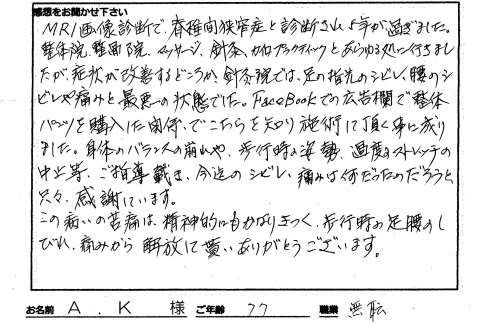 感想をお聞かせ下さい
MRI画像診断で、脊椎間狭窄症と診断され4年が過ぎました。
整体院、整骨院、マッサージ、針灸、カイロプラクティックとあらゆる処に行きまし
たが、症状が改善するどころか、針灸院では、足の指先のシビレ、腰のシ
ビレや痛みと最悪の状態でした。FaceBookでの広告欄で整体
パンツを購入した関係でこちらを知り施術して頂く事に成り
ました。身体のバランスの崩れや、歩行時の姿勢、過度のストレッチの
中止等、ご指導戴き、今迄のシビレ、痛みは何だったのだろうと
只々、感謝しています。
この病いの苦痛は、精神的にもかなりきつく、歩行時の足腰のし
びれ、痛みから解放して貰いありがとうございます。
お名前 A.K 様 ご年齢 77 職業 無職